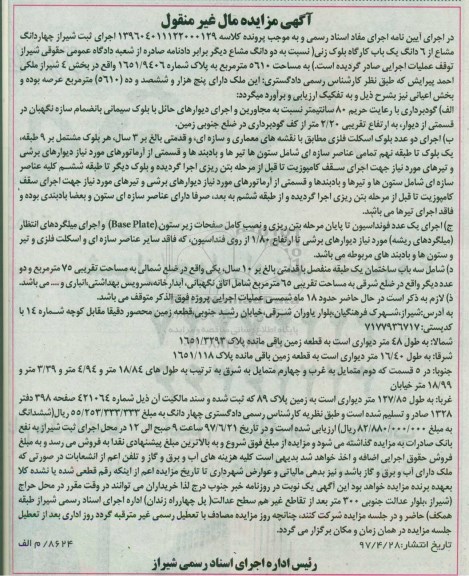 آگهی مزایده مال غیر منقول
در اجرای آیین نامه اجرای مفاد اسناد رسمی و به موجب پرونده کلاسه ۱۳۹۶۰۴۰۱۱۱۲۲۰۰۰۱۲۹ اجرای ثبت شیراز چهاردانگ
مشاع از ۶ دانگ یک باب کارگاه بلوک زنی( نسبت به دو دانگ مشاع دیگر برابر دادنامه صادره از شعبه دادگاه عمومی حقوقی شیراز
توقف عملیات اجرایی صادر گردیده است.) به مساحت ۵۶۱۰ مترمربع به پلاک شماره ۱۶۵۱/۹۴۰۶ واقع در بخش ۴ شیراز ملکی
احمد پیرایش که طبق نظر کارشناس رسمی دادگستری: این ملک دارای پنج هزار و ششصد و ده (۵۶۱۰) مترمربع عرصه بوده و
بخش اعیانی نیز بشرح ذیل و به تفکیک ارزیابی و برآورد میگردد:
الف) گودبرداری با رعایت حریم ۸۰ سانتیمتر نسبت به مجاورین و اجرای دیوارهای حائل با بلوک سیمانی بانضمام سازه نگهبان در
قسمتی از دیوار، به ارتفاع تقریبی ۲/۲۰ متر از کف گودبرداری در ضلع جنوبی زمین.
ب) اجرای دو عدد بلوک اسکلت فلزی مطابق با نقشه های معماری و سازه ای، و قدمتی بالغ بر ۳ سال، هر بلوک مشتمل بر ۹ طبقه،
یک بلوک تا طبقه نهم تمامی عناصر سازه ای شامل ستون ها تیر ها و بادبند ها و قسمتی از آرماتورهای مورد نیاز دیوارهای برشی
و تیرهای مورد نیاز جهت اجرای سقف کامپوزیت تا قبل از مرحله بتن ریزی اجرا گردیده و بلوک دیگر تا طبقه ششم کلیه عناصر
سازه ای شامل ستون ها و تیرها و بادبندها و قسمتی از آرماتورهای مورد نیاز دیوارهای برشی و تیرهای مورد نیاز جهت اجرای سقف
کامپوزیت تا قبل از مرحله بتن ریزی اجرا گردیده و از طبقه ششم به بعد، صرفا دارای عناصر سازه ای ستون و بعضا بادبندی بوده و
فاقد اجرای تیرها می باشید.
ج) اجرای یک عدد فونداسیون تا پایان مرحله بتن ریزی و نصب کامل صفحات زیر ستون (Base Plate) و اجرای میلگردهای انتظار
(میلگردهای ریشه) مورد نیاز دیوارهای برشی تا ارتفاع ۱/۸۰ از روی فنداسیون، که فاقد سایر عناصر سازه ای و اسکلت فلزی و تیر
و ستون ها و بادبند های مربوطه می باشد.
د) شامل سه باب ساختمان یک طبقه منفصل با قدمتی بالغ بر ۱۰ سال، یکی واقع در ضلع شمالی به مساحت تقریبی ۷۵ مترمربع و دو
عدد دیگر واقع در ضلع شرقی به مساحت تقریبی ۶۵ مترمربع شامل اتاق نگهبانی، انبار، خانه، سرویس بهداشتی، انباری و .... می باشد.
ذ) لازم به ذکر است در حال حاضر حدود ۱۸ ماه شمسی عملیات اجرایی پروژه فوق الذکر متوقف می باشد.
به آدرس: شیراز، شهرک فرهنگیان، بلوار یاوران شرقی، خیابان رشید جنوبی، قطعه زمین محصور دقیقا مقابل کوچه شماره ۱۴ با
کدپستی: ۷۱۷۷۹۳۶۷۱۷
شمالا: به طول ۴۸ متر دیواری است به قطعه زمین باقی مانده پلاک ۱۶۵۱/۳۲۹۳
شرقا: به طول ۱۶/۴۰ متر دیواری است به قطعه زمین باقی مانده پلاک ۱۶۵۱/۱۱۸
جنوبا: در ۵ قسمت که دوم متمایل به غرب و چهارم متمایل به شرق به ترتیب به طول های ۱۸/۸۴ متر و ۴/۹۴ متر و ۳/۳۹ متر و
۱۸/۹۹ متر خیابان
غربا: به طول ۱۲۷/۸۵ متر دیواری است به زمین پلاک ۸۹ که ثبت شده و سند مالکیت آن ذیل شماره ۴۲۱۰۶۴ صفحه ۳۹۸ دفتر
۱۳۲۸ صادر و تسلیم شده است و طبق نظریه کارشناس رسمی دادگستری چهار دانگ به مبلغ ۵۵/۲۵۳/۳۳۳/۳۳۳ ریال(ششدانگ
به مبلغ ۸۲/۸۸۰/۰۰۰/۰۰۰ ریال) ارزیابی شده است و در تاریخ ۹۷/۶/۲۱ ساعت ۹ صبح الی ۱۲ در محل اجرای ثبت شیراز به نفع
بانک صادرات به مزایده گذاشته می شود و مزایده از مبلغ فوق شروع و به بالاترین مبلغ پیشنهادی نقدا به فروش می رسد و به مبلغ
فروش حقوق اجرایی اضافه و اخذ خواهد شد بدیهی است کلیه هزینه های آب و برق و گاز و تلفن اعم از انشعابات در صورتی که
ملک دارای آب و برق و گاز باشد و نیز بدهی مالیاتی و عوارض شهرداری تا تاریخ مزایده اعم از اینکه رقم قطعی شده یا نشده کلا
بعهده برنده مزایده خواهد بود این آگهی یک نوبت در روزنامه خبر جنوب درج لذا خریداران می توانند در وقت مقرر در محل حراج
(شیراز، بلوار عدالت جنوبی ۳۰۰ متر بعد از تقاطع غیر هم سطح عدالت( پل چهارراه زندان) اداره اجرای اسناد رسمی شیراز طبقه
همکف) حاضر و در جلسه مزایده شرکت کنند، چنانچه روز مزایده مصادف با تعطیل رسمی غیر مترقبه گردد روز اداری بعد از تعطیل
جلسه مزایده در همان زمان و مکان برگزار می گردد.
تاریخ انتشار: ۹۷/۴/۲۸
۸۶۲۴/ م الف
رئیس اداره اجرای اسناد رسمی شیراز